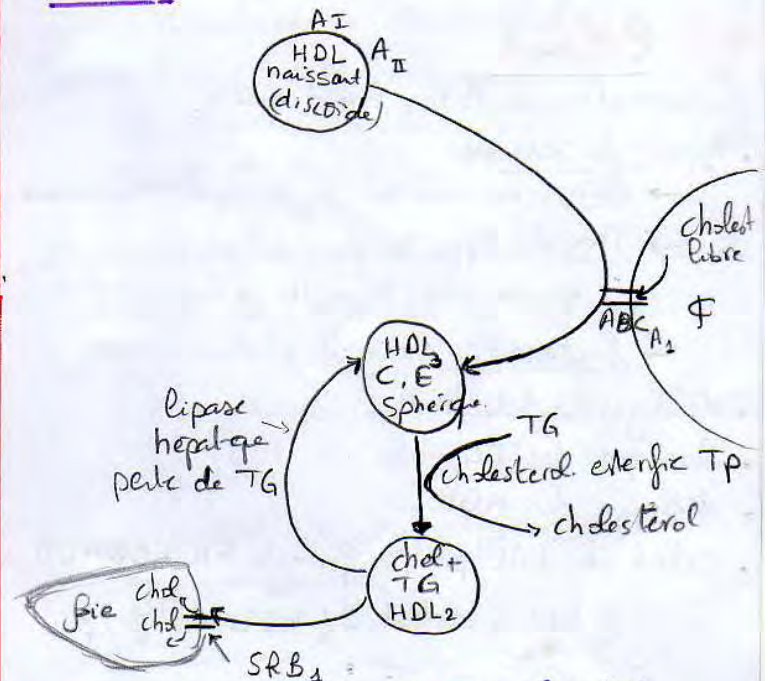 AI
HDL
naissant
(discoïde)
A II
cholest
libre
ABC A1
¢
HDL3
C, E
Sphérique
lipase
hepatique
perte de TG
TG
cholesterol esterifie TP
cholestérol
chol +
TG
HDL2
foie
chol
chol
SRB1